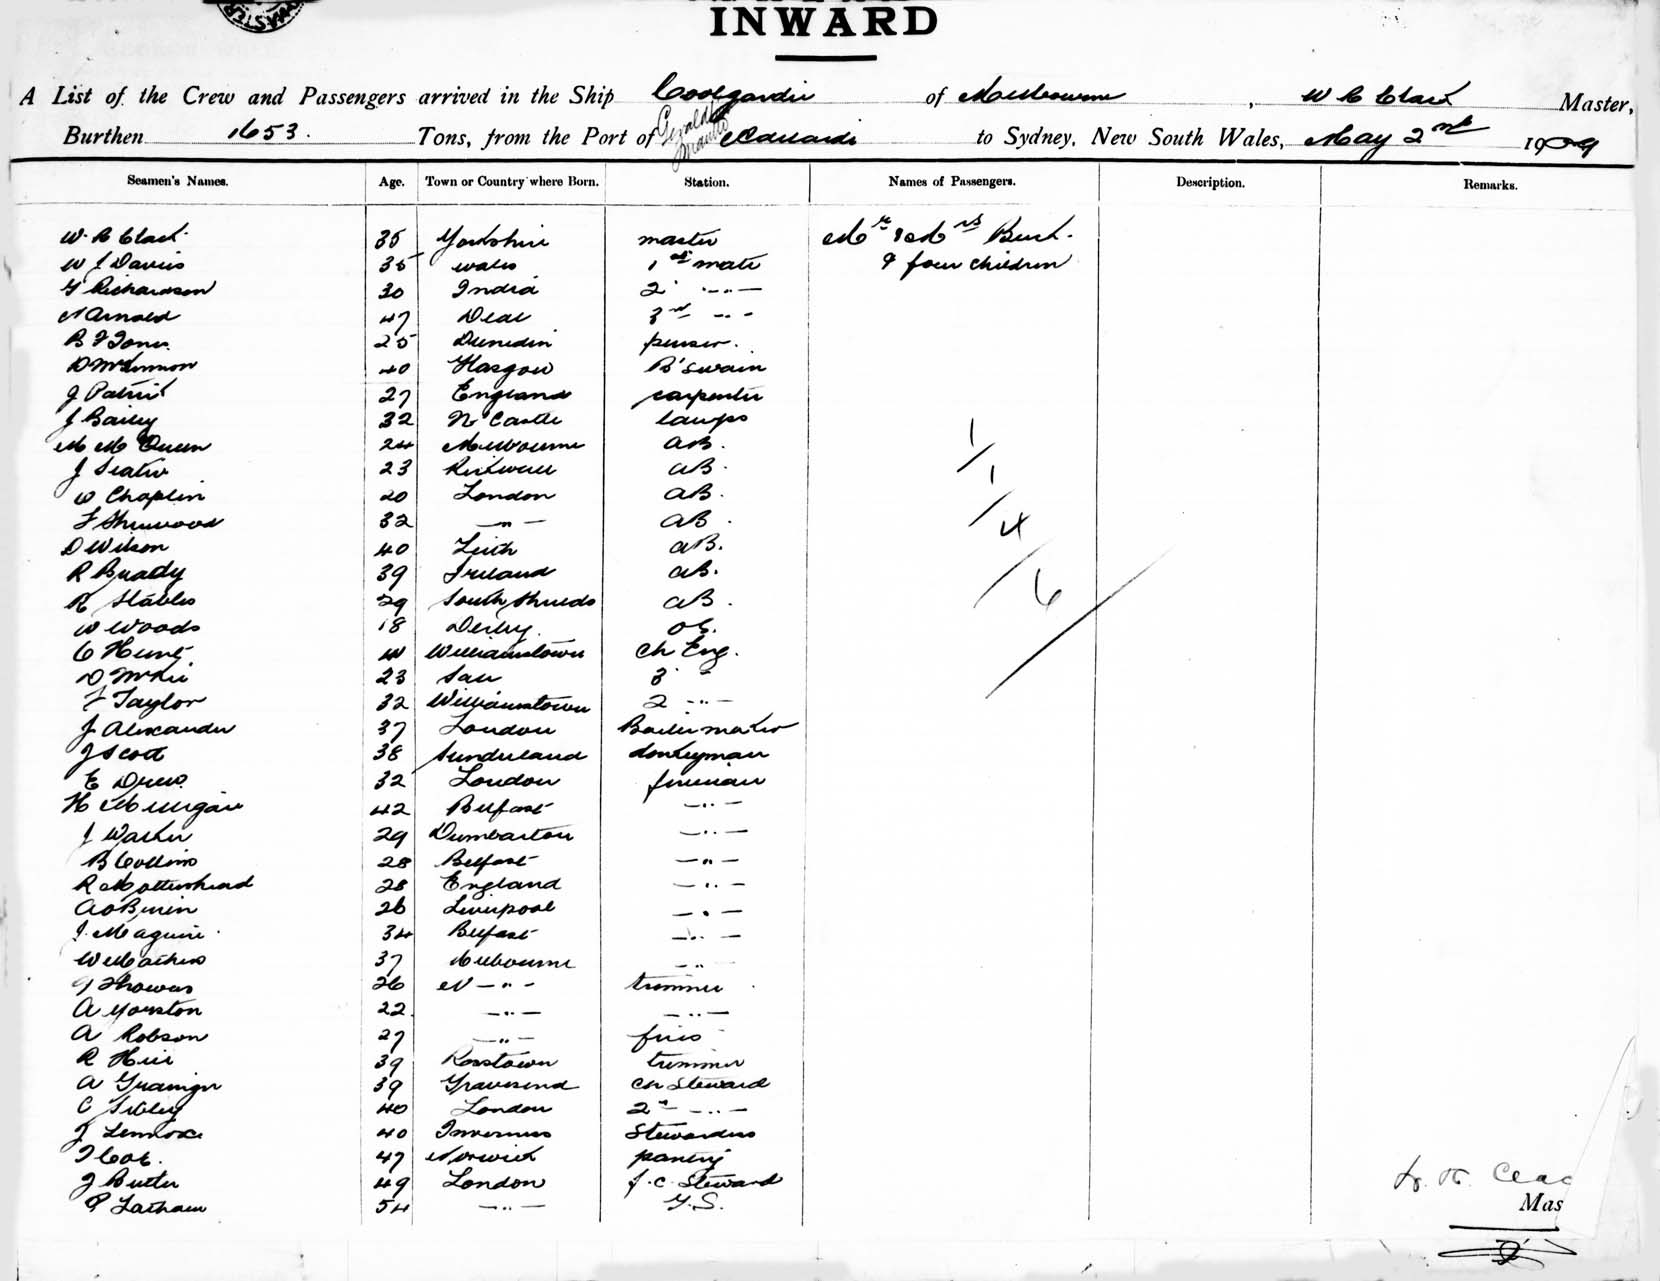 INWARD
A List of the Crew and Passengers arrived in the Ship Coolgardie of Melbourne, W R Clark Master,
Burthen 1653. Tons, from the Port of Adelaide to Sydney, New South Wales, May 2nd 1909
Seamen's Names. Age. Town or Country where Born. Station. Names of Passengers. Description. Remarks.
W. R Clark. 35 Yorkshire master Mr & Mrs Bush.
W J Davies 35 Wales 1st mate & four children
G Richardson 30 India 2 " 
N Arnold 47 Deal 3rd "
B F Jones 25 Dunedin purser.
D McKinnon 40 Glasgow B'swain
J Patrick 27 England carpenter
J Bailey 32 N Castle lamps
M McQueen 24 Melbourne AB.
J Seater 23 Kirkwall AB.
W Chaplin 20 London AB.
F Sherwood 32 " AB.
D Wilson 40 Leith AB.
R Brady 39 Ireland AB.
R Stables 29 South Shields AB.
W Woods 18 Derby. OS.
C Hunt Williamstown Ch Eng.
D McKie 23 3 "
F Taylor 32 Williamstown 2 "
J Alexander 37 London Boilermaker
J Scott 38 Sunderland donkeyman
E Drew 32 London fireman
H Mulligan 42 Belfast "
J Walker 29 Dumbarton "
B Collins 28 Belfast "
R Mottershead 28 England "
A O'Brien 26 Liverpool "
J. Maguire 34 Belfast "
W Mathers 37 Melbourne "
G Thomas 26 N " trimmer
A Yourston 22. " "
A Robson 27 " fires
R Hill 39 Rosstown trimmer
A Grainger 39 Gravesend Ch Steward
C Sibley 40 London 2nd "
J Lennox 40 Inverness Stewardess
J Cook. 47 Norwich pantry
J Butler 49 London f.c. Steward
P Latham 54 " G.S.
1/1/4/6
W. R. Clar
Mas